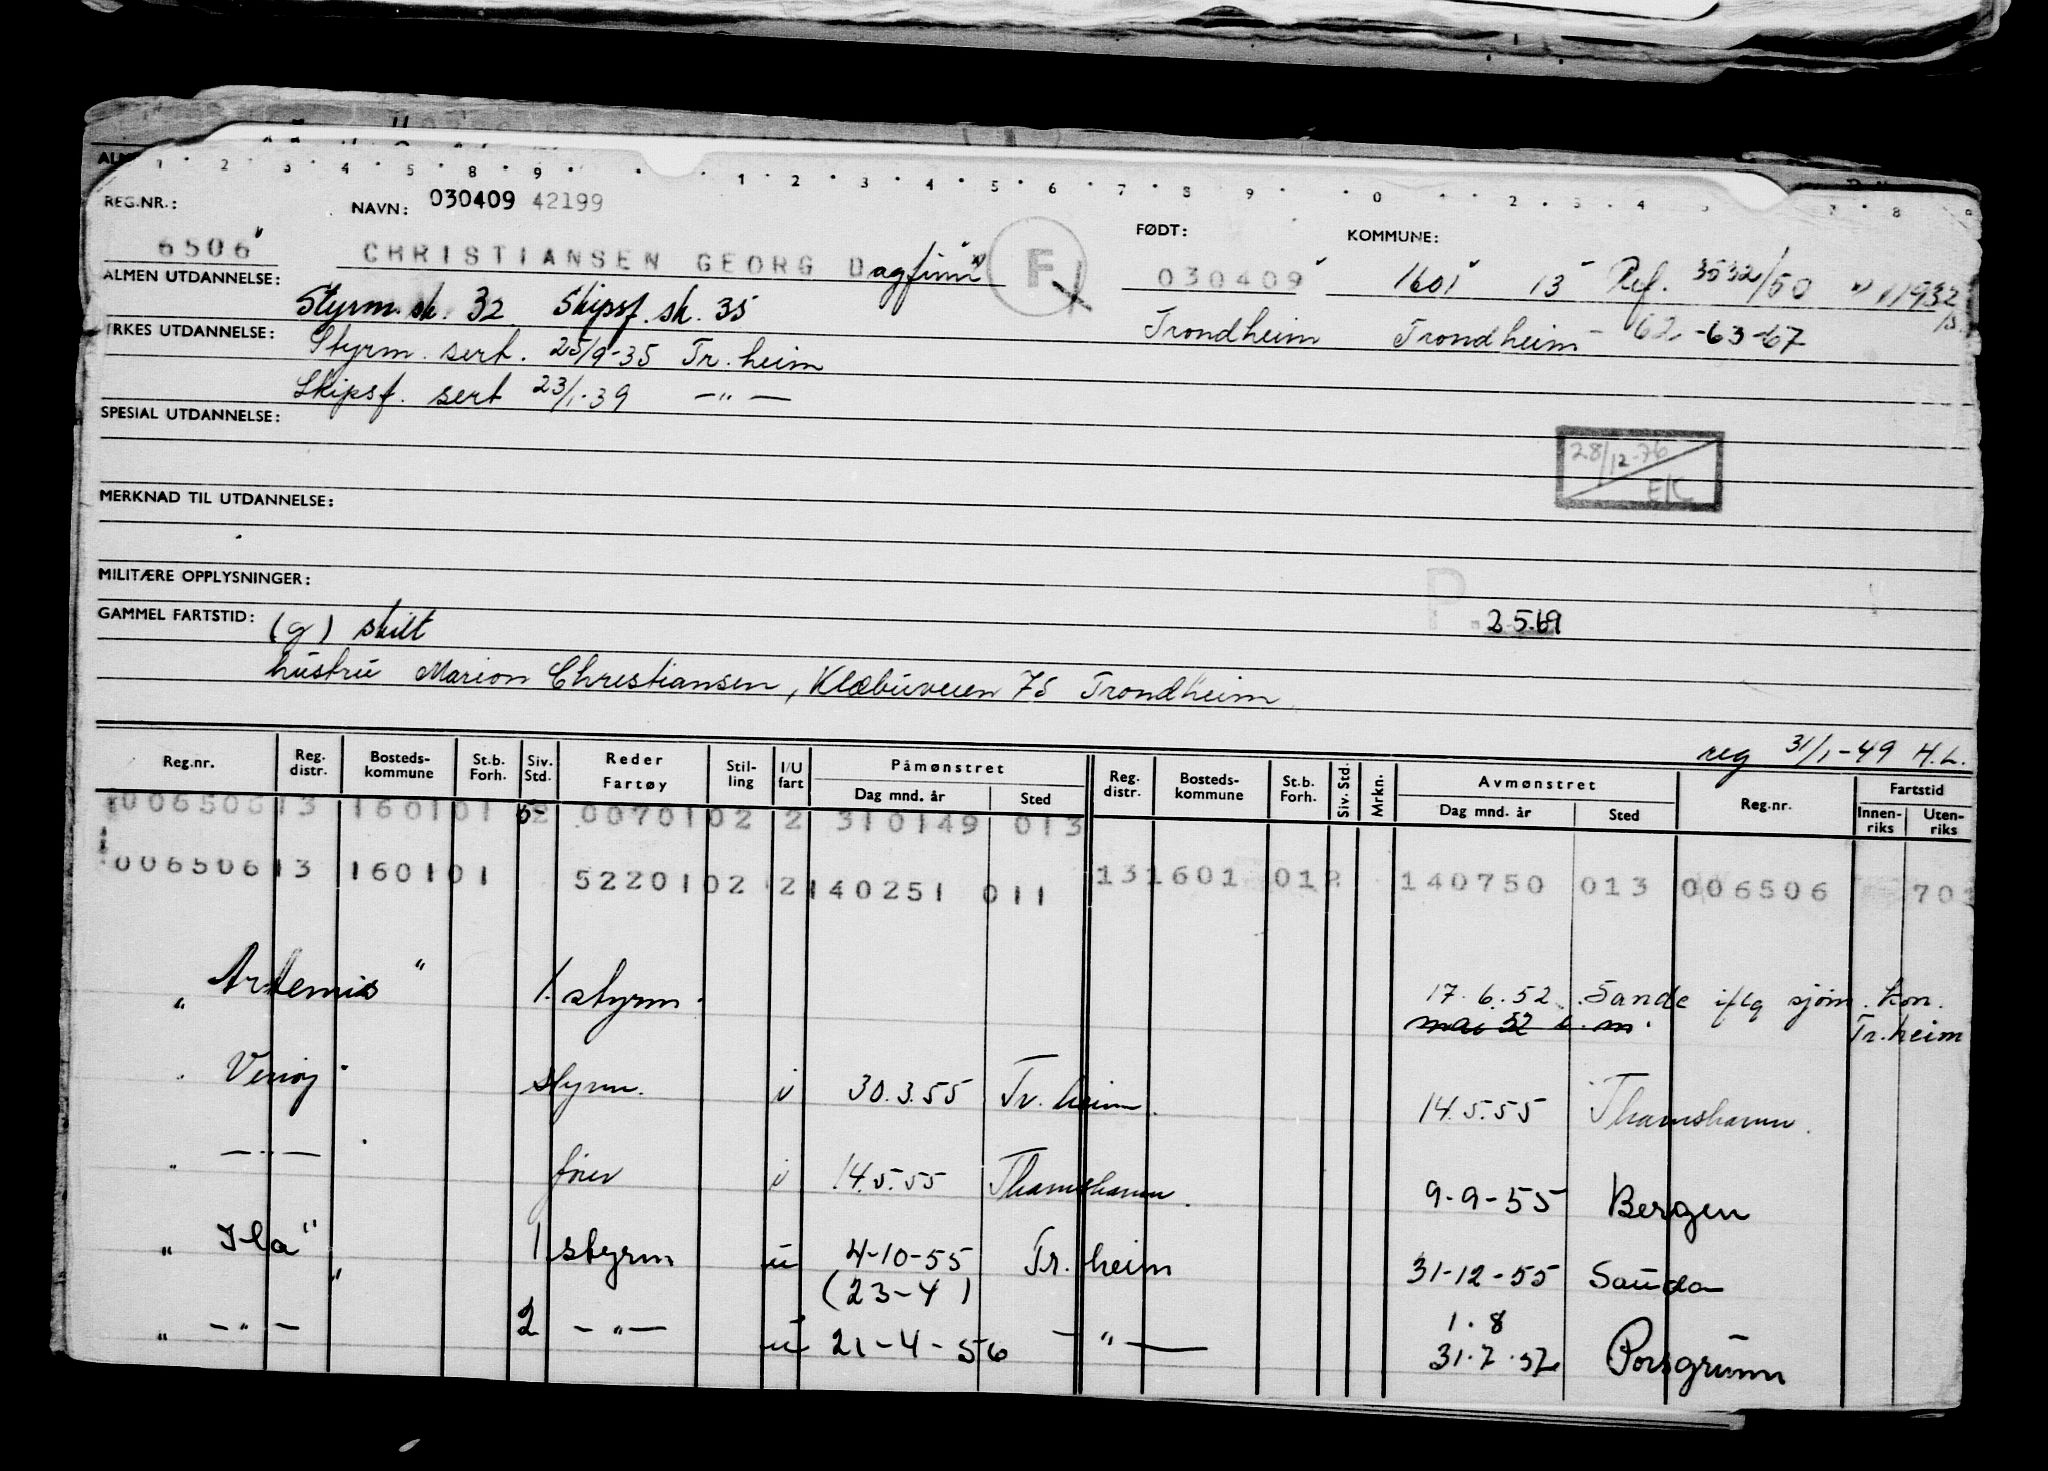 1 2 3 4 5 8 9 1 2 3 4 5 6 7 8 9 0 2 3 4 8 9
REG.NR.: NAVN: 030409 42199 FØDT: KOMMUNE:
6506 CHRISTIANSEN GEORG Dagfinn F 030409 1601 13 Ref. 3532/50 " 11932
ALMEN UTDANNELSE: Styrm.sk. 32 Skipsf. sk. 35 Trondheim Trondheim - 62-63-67
YRKES UTDANNELSE: Styrm. sert. 25/9-35 Tr.heim
Skipsf. sert 23/1-39 —"—
SPESIAL UTDANNELSE:
28/12-76 EK
MERKNAD TIL UTDANNELSE:
MILITÆRE OPPLYSNINGER:
P. 2.5.69
GAMMEL FARTSTID: (g) skilt
hustru Marion Christiansen, Klæbuveien 75 Trondheim
reg 31/1-49 H.L.
Reg.nr. Reg. distr. Bosteds- kommune St.b. Forh. Siv. Std. Reder Fartøy Stil- ling I/U fart Påmønstret Dag mnd. år Sted Reg. distr. Bosteds- kommune St.b. Forh. Siv. Std. Mrkn. Avmønstret Dag mnd. år Sted Reg.nr. Fartstid Innen- riks Uten- riks
00650613 160101 5 00701 02 2 310149 013
00650613 160101 52201 02 2 140251 011 131601 012 140750 013 006506 70
" Artemis " 1. styrm. 17.6.52 Sande iflg sjøm. kon. Tr.heim
mai 52 s.m.
styrm. i 30.3.55 Tr.heim. 14.5.55 Thamshavn.
" —"— fører i 14.5.55 Thamshavn. 9-9-55 Bergen
" Ila " 1. styrm u 4-10-55 Tr.heim 31-12-55 Sauda
(23-4) 1.8
" —"— 2 —"— u 21-4-56 —"— 31.7.57 Porsgrunn